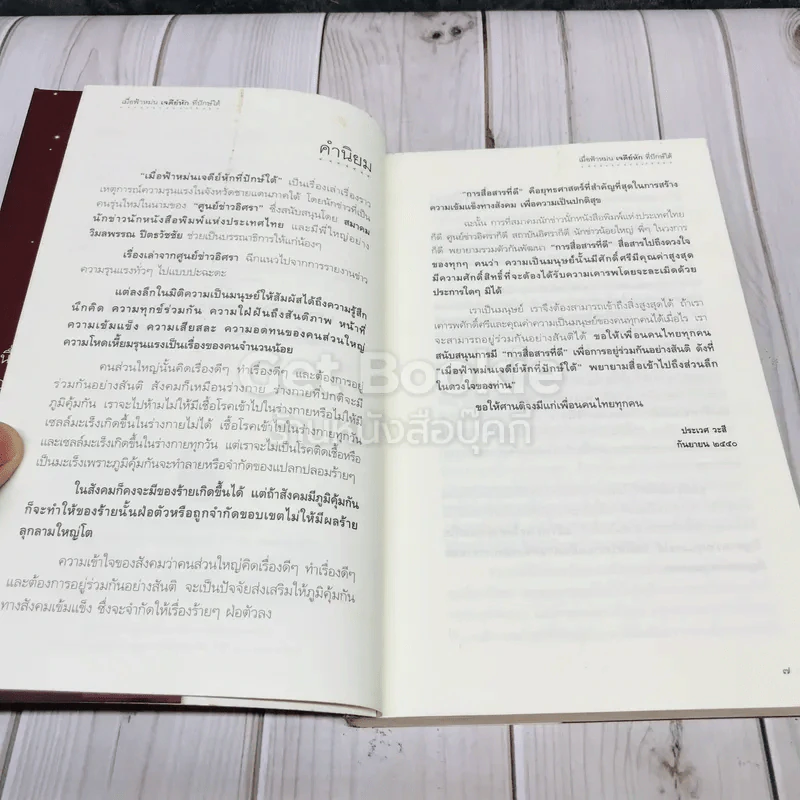 เมื่อฟ้าหม่น เจดีย์หัก ที่ปักษ์ใต้
คำนิยม
"เมื่อฟ้าหม่นเจดีย์หักที่ปักษ์ใต้" เป็นเรื่องเล่าเรื่องราว
เหตุการณ์ความรุนแรงในจังหวัดชายแดนภาคใต้ โดยนักข่าวที่เป็น
คนรุ่นใหม่ในนามของ "ศูนย์ข่าวอิศรา" ซึ่งสนับสนุนโดย สมาคม
นักข่าวนักหนังสือพิมพ์แห่งประเทศไทย และมีพี่ใหญ่อย่าง
วิมลพรรณ ปีตธวัชชัย ช่วยเป็นบรรณาธิการให้แก่น้องๆ
เรื่องเล่าจากศูนย์ข่าวอิศรา ฉีกแนวไปจากการรายงานข่าว
ความรุนแรงทั่วๆ ไปแบบปะฉะดะ
แต่ลงลึกในมิติความเป็นมนุษย์ให้สัมผัสได้ถึงความรู้สึก
นึกคิด ความทุกข์ร่วมกัน ความใฝ่ฝันถึงสันติภาพ หน้าที่
ความเข้มแข็ง ความเสียสละ ความอดทนของคนส่วนใหญ่
ความโหดเหี้ยมรุนแรงเป็นเรื่องของคนจำนวนน้อย
คนส่วนใหญ่นั้นคิดเรื่องดีๆ ทำเรื่องดีๆ และต้องการอยู่
ร่วมกันอย่างสันติ สังคมก็เหมือนร่างกาย ร่างกายที่ปกติจะมี
ภูมิคุ้มกัน เราจะไปห้ามไม่ให้มีเชื้อโรคเข้าไปในร่างกายหรือไม่ให้มี
เซลล์มะเร็งเกิดขึ้นในร่างกายไม่ได้ เชื้อโรคเข้าไปในร่างกายทุกวัน
และเซลล์มะเร็งเกิดขึ้นในร่างกายทุกวัน แต่เราจะไม่เป็นโรคติดเชื้อหรือ
เป็นมะเร็งเพราะภูมิคุ้มกันจะทำลายหรือจำกัดของแปลกปลอมร้ายๆ
ในสังคมก็คงจะมีของร้ายเกิดขึ้นได้ แต่ถ้าสังคมมีภูมิคุ้มกัน
ก็จะทำให้ของร้ายนั้นฝ่อตัวหรือถูกจำกัดขอบเขตไม่ให้มีผลร้าย
ลุกลามใหญ่โต
ความเข้าใจของสังคมว่าคนส่วนใหญ่คิดเรื่องดีๆ ทำเรื่องดีๆ
และต้องการอยู่ร่วมกันอย่างสันติ จะเป็นปัจจัยส่งเสริมให้ภูมิคุ้มกัน
ทางสังคมเข้มแข็ง ซึ่งจะจำกัดให้เรื่องร้ายๆ ฝ่อตัวลง
เมื่อฟ้าหม่น เจดีย์หัก ที่ปักษ์ใต้
"การสื่อสารที่ดี" คือยุทธศาสตร์ที่สำคัญที่สุดในการสร้าง
ความเข้มแข็งทางสังคม เพื่อความเป็นปกติสุข
ฉะนั้น การที่สมาคมนักข่าวนักหนังสือพิมพ์แห่งประเทศไทย
ก็ดี ศูนย์ข่าวอิศราก็ดี สถาบันอิศราก็ดี นักข่าวน้อยใหญ่ ที่ๆ ในวงการ
ก็ดี พยายามรวมตัวกันพัฒนา "การสื่อสารที่ดี" สื่อสารไปถึงดวงใจ
ของทุกๆ คนว่า ความเป็นมนุษย์นั้นมีศักดิ์ศรีมีคุณค่าสูงสุด
มีความศักดิ์สิทธิ์ที่จะต้องได้รับความเคารพโดยจะละเมิดด้วย
ประการใดๆ มิได้
เราเป็นมนุษย์ เราจึงต้องสามารถเข้าถึงสิ่งสูงสุดได้ ถ้าเรา
เคารพศักดิ์ศรีและคุณค่าความเป็นมนุษย์ของคนทุกคนได้เมื่อไร เรา
จะสามารถอยู่ร่วมกันอย่างสันติได้ ขอให้เพื่อนคนไทยทุกคน
สนับสนุนการมี "การสื่อสารที่ดี" เพื่อการอยู่ร่วมกันอย่างสันติ ดังที่
"เมื่อฟ้าหม่นเจดีย์หักที่ปักษ์ใต้" พยายามสื่อเข้าไปถึงส่วนลึก
ในดวงใจของท่าน"
ขอให้ศานติจงมีแก่เพื่อนคนไทยทุกคน
ประเวศ วะสี
กันยายน ๒๕๕๐
๗
Get Bookie
ร้านหนังสือบุ๊คกี้